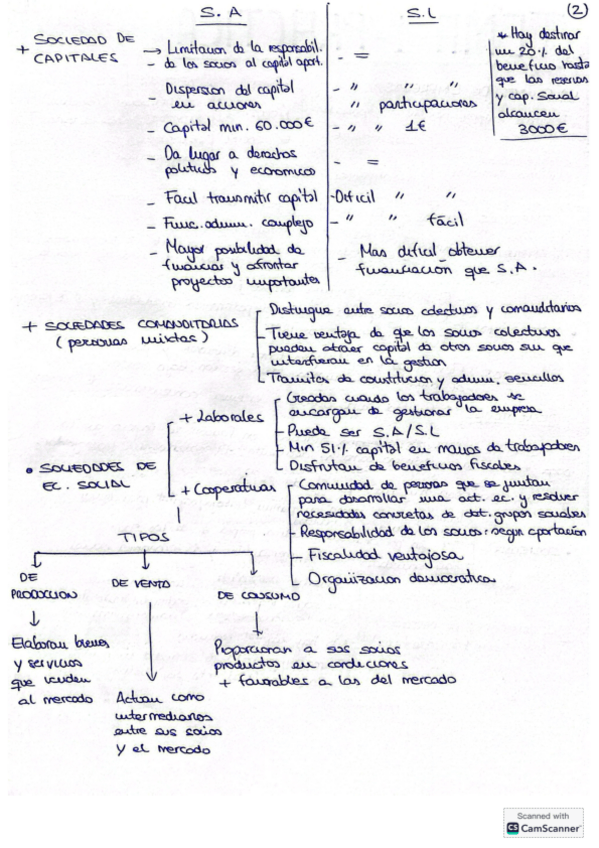 (2)
S.A
S.L
+ SOCIEDAD DE
CAPITALES
→ Limitacion de la responsabil.
- de los socios al capital aport.
- =
- Dispersion del capital
en acciones
- " " "
" participaciones
- Capital min. 60.000€
- " " 1€
- Da lugar a derechos
politicos y economicos
- =
- Facil transmitir capital
- Dificil " "
- Func. admin. complejo
- " " fácil
- Mayor posibilidad de
financiar y afrontar
proyectos importantes
- Mas dificil obtener
financiación que S.A.
* Hay destinar
un 20% del
beneficio hasta
que las reservas
y cap. Social
alcancen
3000€
+ SOCIEDADES COMANDITARIAS
(personas mixtas)
- Distingue entre socios colectivos y comanditarios
- Tiene ventaja de que los socios colectivos
pueden atraer capital de otros socios sin que
interfieran en la gestion
- Tramites de constitucion y admin. sencillos
• SOCIEDADES DE
EC. SOCIAL
+ Laborales
- Creadas cuando los trabajadores se
encargan de gestionar la empresa
- Puede ser S.A/S.L
- Min 51% capital en manos de trabajadores
- Disfrutan de beneficios fiscales
+ Cooperativas
- Comunidad de personas que se juntan
para desarrollar una act. ec. y resolver
necesidades concretas de det. grupos sociales
- Responsabilidad de los socios: segun aportación
- Fiscalidad ventajosa
- Organizacion democratica
TIPOS
DE
PRODUCCION
DE VENTA
DE CONSUMO
Elaboran bienes
y servicios
que venden
al mercado
Actuan como
intermediarios
entre sus socios
y el mercado
Proporcionan a sus socios
productos en condiciones
+ favorables a las del mercado
Scanned with
CS CamScanner